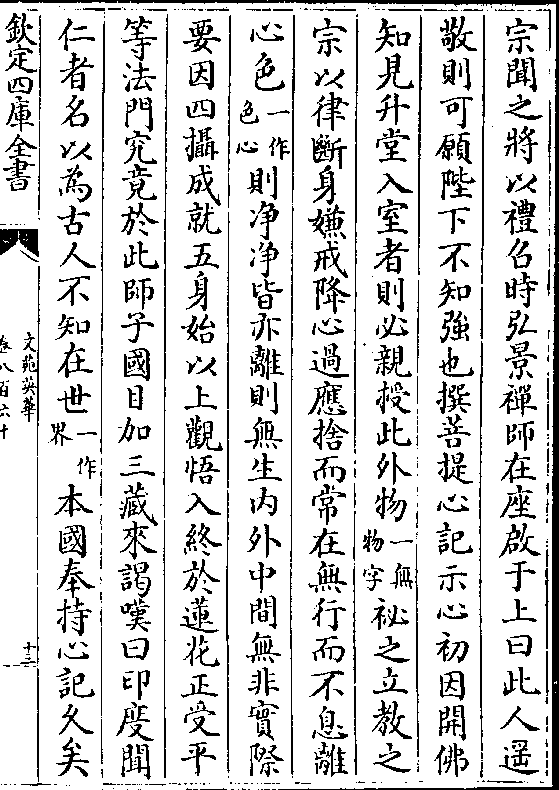 宗聞之將以禮召時弘景禪師在座啟于上曰此人遥
敬則可願陛下不知強也撰菩提心記示心初因開佛
知見升堂入室者則必親授此外物一無物字祕之立教之
宗以律斷身嫌戒降心過應捨而常在無行而不息離
心色一作色心則净净皆亦離則無生内外中間無非實際
要因四攝成就五身始以上觀悟入終於蓮花正受平
等法門究竟於此師子國目加三藏來謁嘆曰印度聞
仁者名以為古人不知在世一作界本國奉持心記久矣
欽定四庫全書
文苑英華
卷八百六十
十三